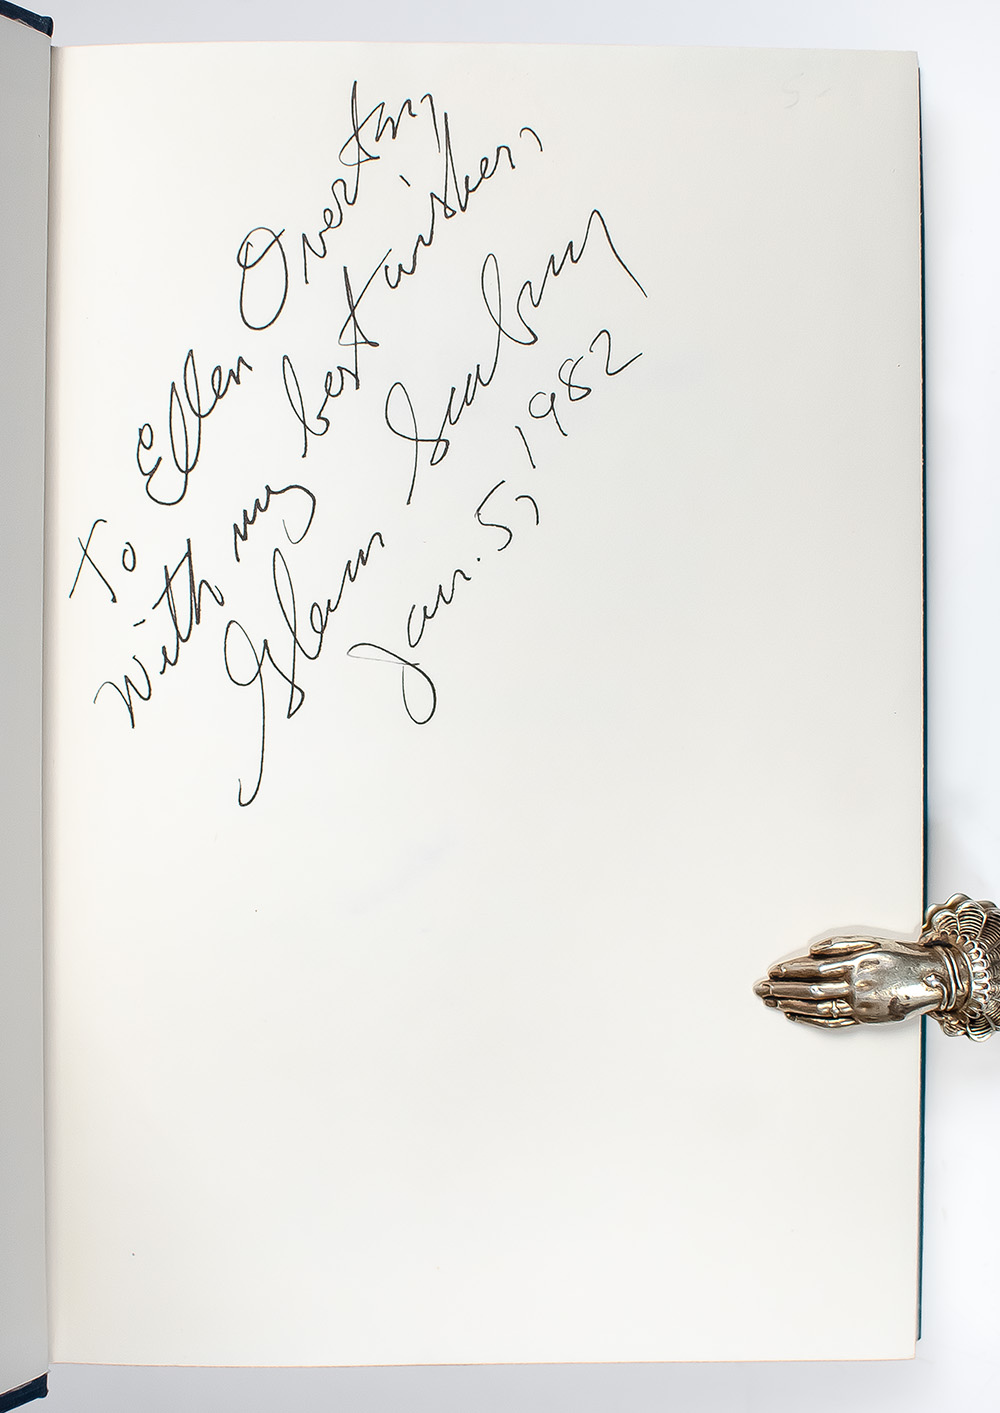 To Ellen Overton,
With my best wishes,
Glenn Seaborg
Jan. 5, 1982